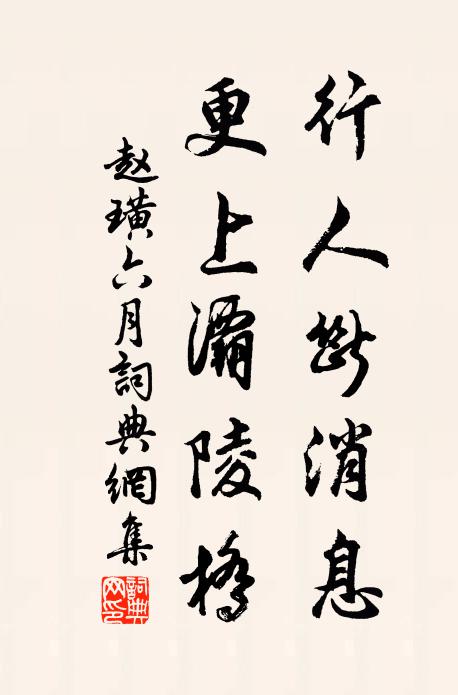 行人斷消息
更上灞陵橋
赵璜六月詞典網集
詞典網印